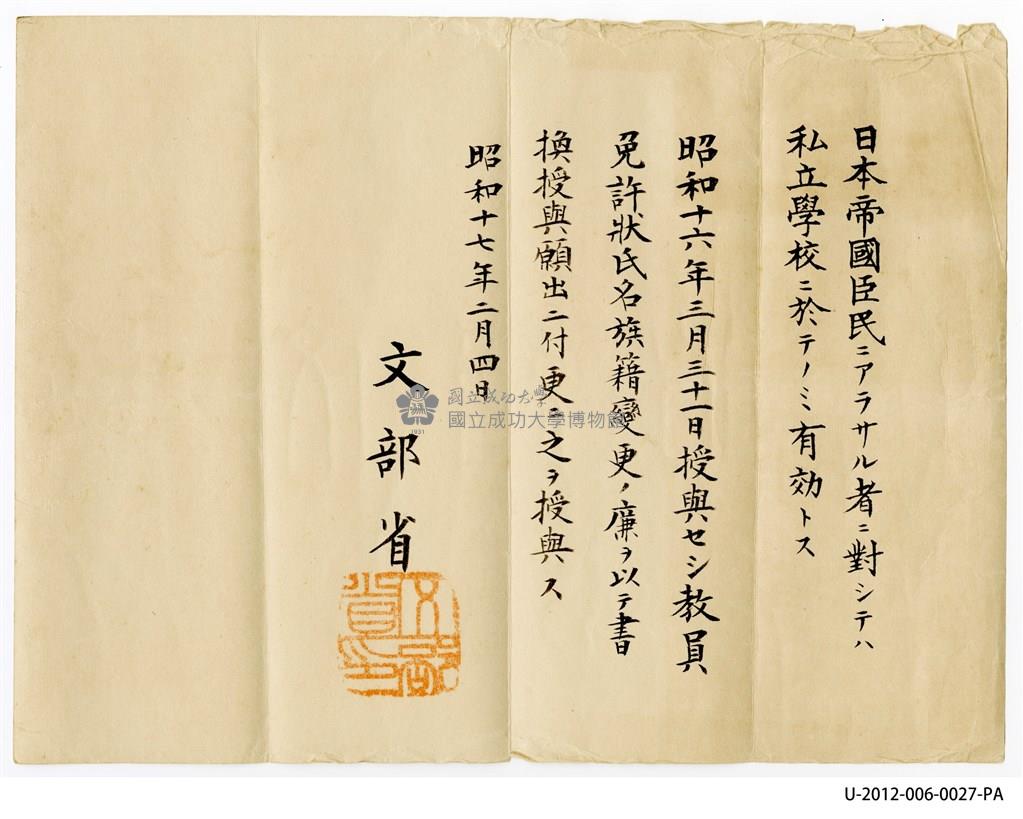 日本帝國臣民ニアラサル者ニ對シテハ
私立學校ニ於テノミ有効トス
昭和十六年三月三十一日授與セシ教員
免許狀氏名族籍變更ノ廉ヲ以テ書
換授與願出ニ付更ニ之ヲ授與ス
昭和十七年二月四日
文部省
文部省印
國立成功大學
國立成功大學博物館
1931
U-2012-006-0027-PA